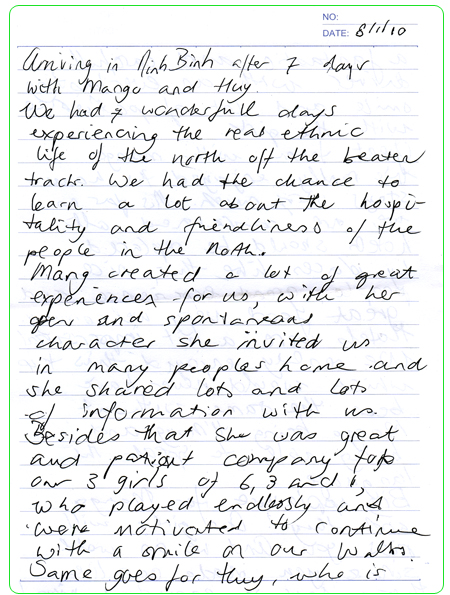 NO:
DATE: 8/1/10
Arriving in Ninh Binh after 7 days
with Mango and Huy.
We had 7 wonderfull days
experiencing the real ethnic
life of the north off the beaten
track. We had the chance to
learn a lot about the hospi-
tality and friendliness of the
people in the North.
Mang created a lot of great
experiences for us, with her
open and spontaneous
character she invited us
in many peoples home and
she shared lots and lots
of information with us.
Besides that she was great
and patient company for
our 3 girls of 6, 3 and 1,
who played endlessly and
were motivated to continue
with a smile on our walks.
Same goes for Huy, who is